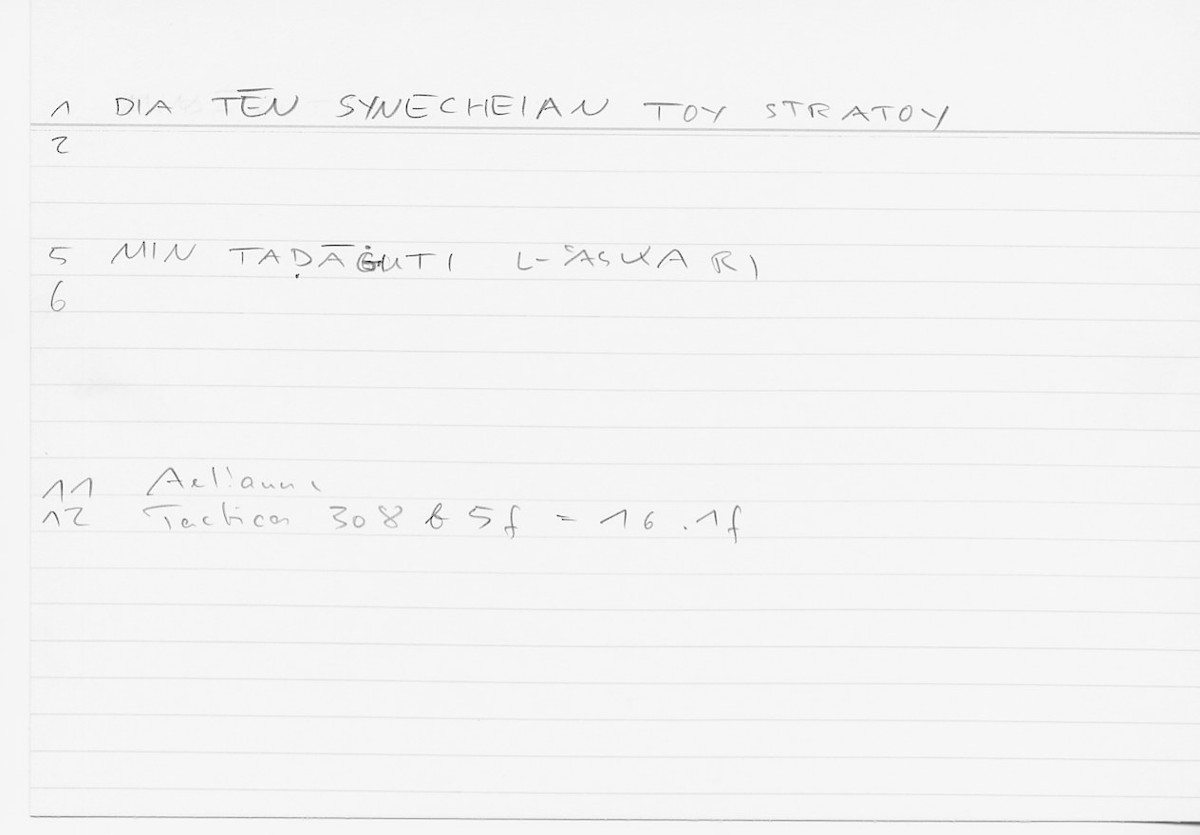 1 DIA TĒN SYNECHEIAN TOY STRATOY
2
5 MIN TAḌĀĠUTI L-ʿASKARI
6
11 Aelianus
12 Tactica 308 b 5f = 16.1f